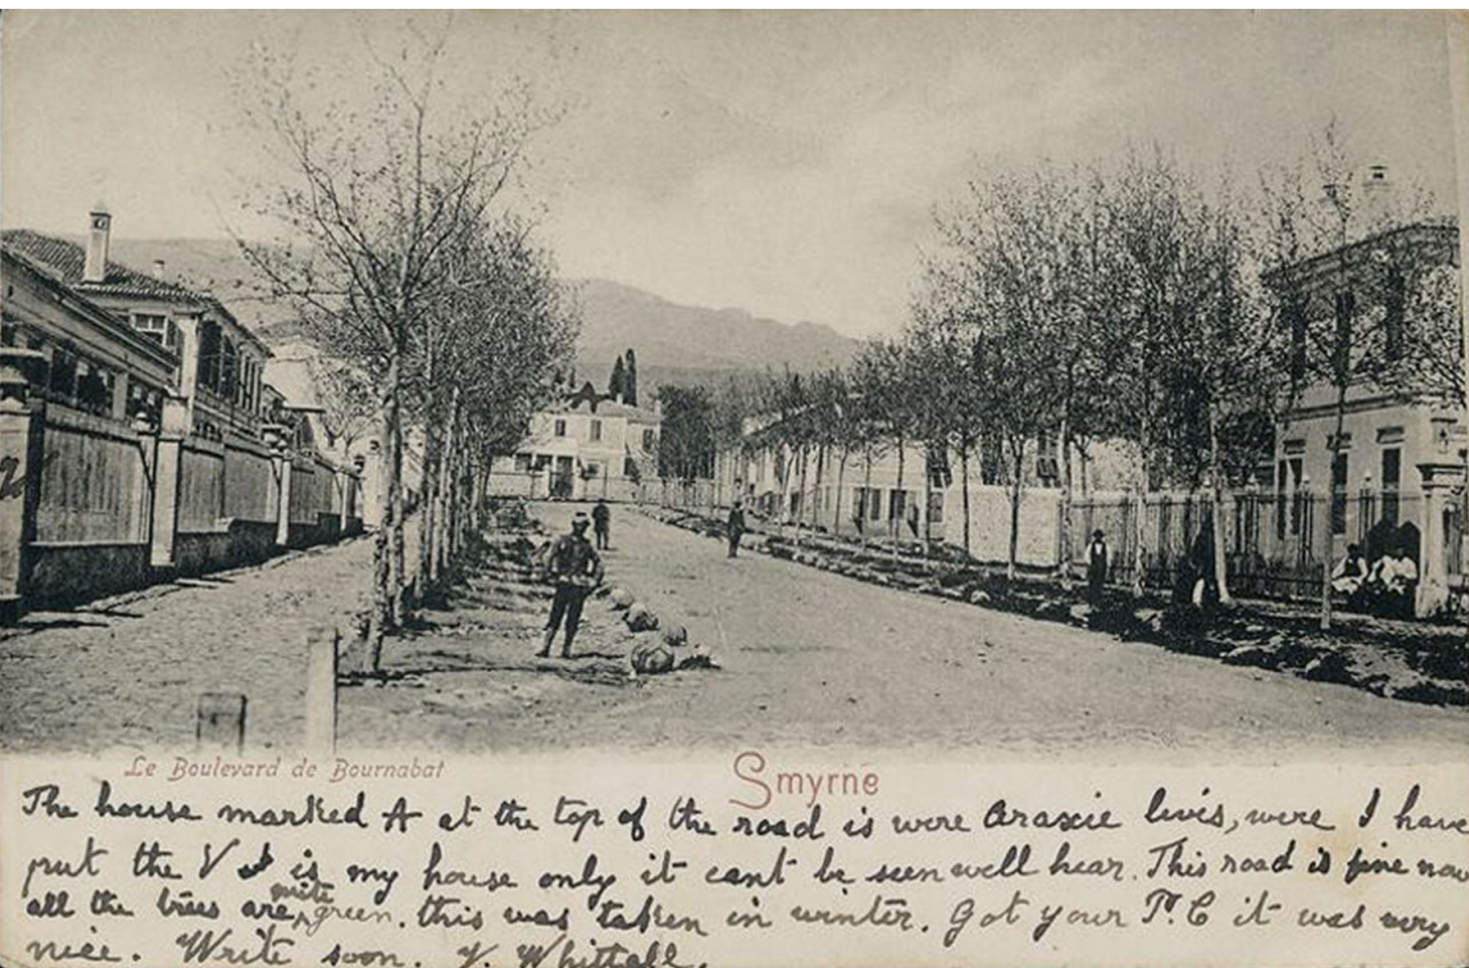 Le Boulevard de Bournabat
Smyrne
The house marked A at the top of the road is were Araxie livis, were I have
put the V is my house only it cant be seen well hear. This road is fine now
all the trees are quite green. this was taken in winter. Got your P.C it was very
nice. Write soon. V. Whittall.